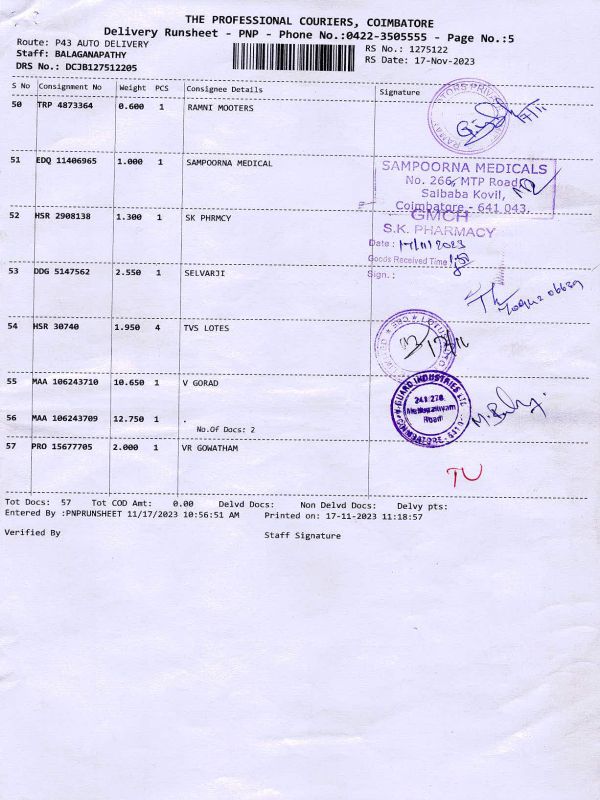 THE PROFESSIONAL COURIERS, COIMBATORE
Delivery Runsheet - PNP - Phone No.:0422-3505555 - Page No.:5
Route: P43 AUTO DELIVERY
RS No.: 1275122
Staff: BALAGANAPATHY
RS Date: 17-Nov-2023
DRS No.: DCJB127512205
S No Consignment No Weight PCS Consignee Details Signature
50 TRP 4873364 0.600 1 RAMNI MOOTERS
17/11
51 EDQ 11406965 1.000 1 SAMPOORNA MEDICAL
SAMPOORNA MEDICALS
No. 266, MTP Road,
Saibaba Kovil,
Coimbatore - 641 043.
52 HSR 2908138 1.300 1 SK PHRMCY
GMCH
S.K. PHARMACY
Date : 17/11/2023
Goods Received Time
Sign. :
53 DDG 5147562 2.550 1 SELVARJI
54 HSR 30740 1.950 4 TVS LOTES
55 MAA 106243710 10.650 1 V GORAD
GUARD INDUSTRIES LTD
Mettupalayam
Road
COIMBATORE
56 MAA 106243709 12.750 1 .
No.Of Docs: 2
57 PRO 15677705 2.000 1 VR GOWATHAM
Tot Docs: 57 Tot COD Amt: 0.00 Delvd Docs: Non Delvd Docs: Delvy pts:
Entered By :PNPRUNSHEET 11/17/2023 10:56:51 AM Printed on: 17-11-2023 11:18:57
Verified By Staff Signature